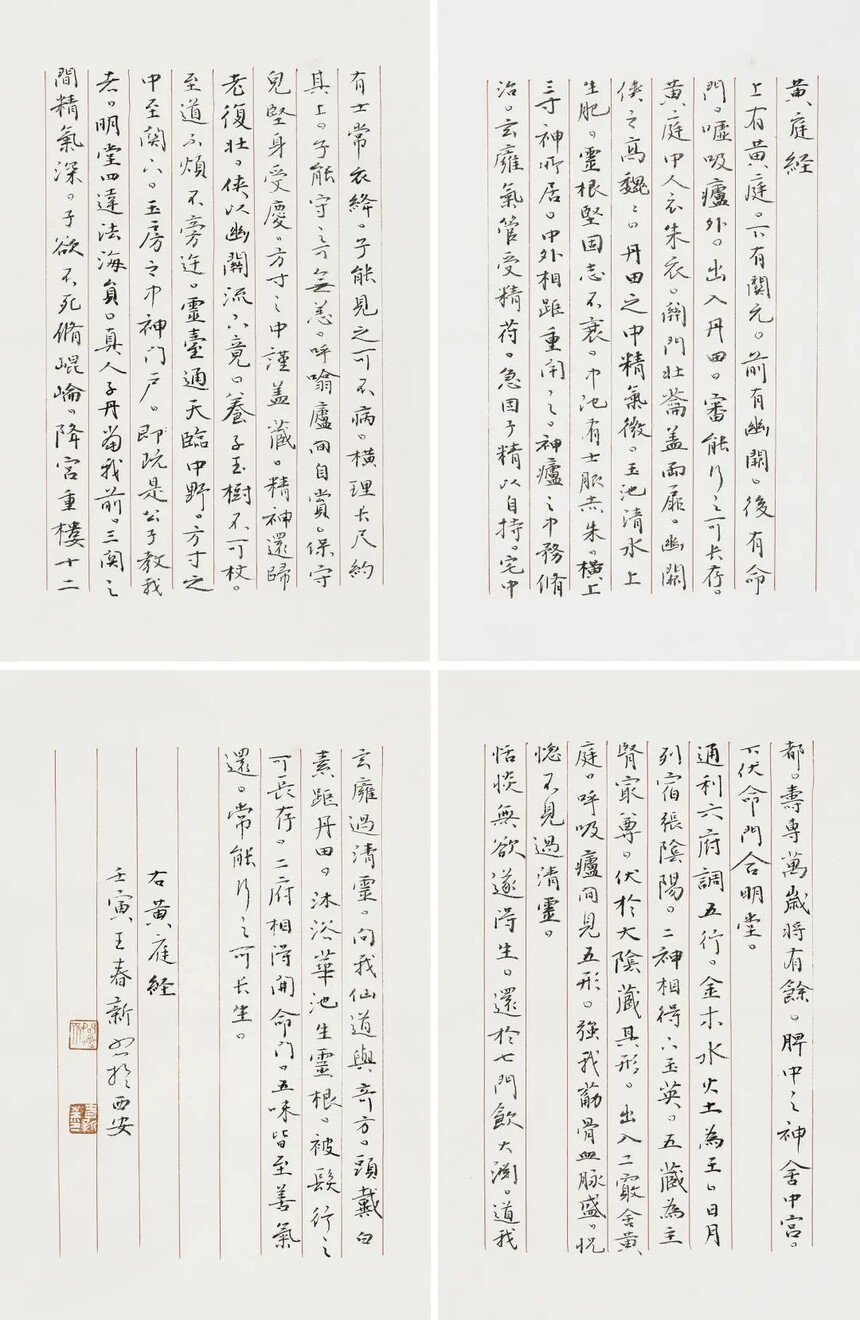 黃庭経
上有黃庭。下有關元。前有幽闕。後有命
門。嘘吸廬外。出入丹田。審能行之可长存。
黃庭中人衣朱衣。關門壯蘥盖兩扉。幽闕
俠之高魏〻。丹田之中精氣微。玉池清水上
生肥。靈根堅固志不衰。中池有士服赤朱。橫上
三寸神所居。中外相距重閉之。神廬之中務脩
治。玄雍氣管受精苻。急固子精以自持。宅中
有士常衣絳。子能見之可不病。橫理长尺約
其上。子能守之可無恙。呼噏廬间自賞。保守
皃堅身受慶。方寸之中謹盖藏。精神還歸
老復壯。侠以幽闕流下竟。養子玉樹不可杖。
至道不煩不旁迕。靈臺通天臨中野。方寸之
中至関下。玉房之中神门户。即既是公子教我
者。明堂四達法海員。真人子丹當我前。三関之
間精氣深。子欲不死脩崐崘。降宮重樓十二
都。壽專萬歲将有餘。脾中之神舍中宮。
下伏命門合明堂。
通利六府調五行。金木水火土為王。日月
列宿張陰陽。二神相得下玉英。五藏為主
腎最尊。伏於大陰藏其形。出入二竅舍黃
庭。呼吸廬间見五形。強我筋骨血脉盛。怳
惚不見過清靈。
恬惔無欲遂得生。還於七門飲大渊。道我
玄雍過清靈。问我仙道與奇方。頭戴白
素距丹田。沐浴華池生靈根。被髮行之
可長存。二府相得開命门。五味皆至善氣
還。常能行之可长生。
右黃庭経
壬寅王春新书於西安